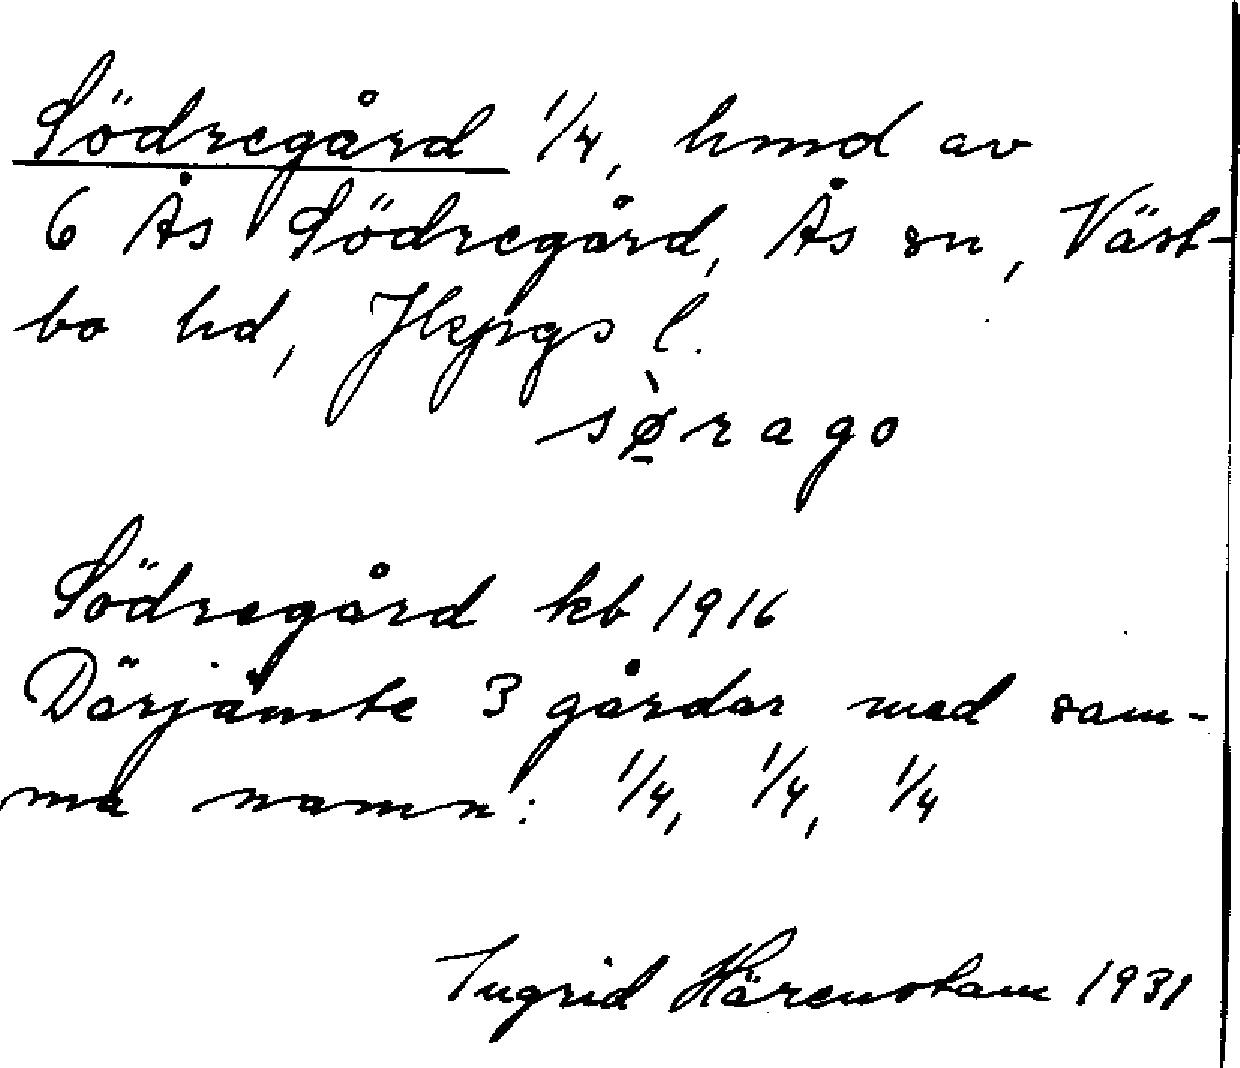 Södregård 1/4, hmd av
6 Ås Södregård, Ås sn, Väst-
bo hd, Jkpgs l.
sø̱̀rago
Södregård kb 1916
Därjämte 3 gårdar med sam-
ma namn: 1/4, 1/4, 1/4
Ingrid Härenstam 1931